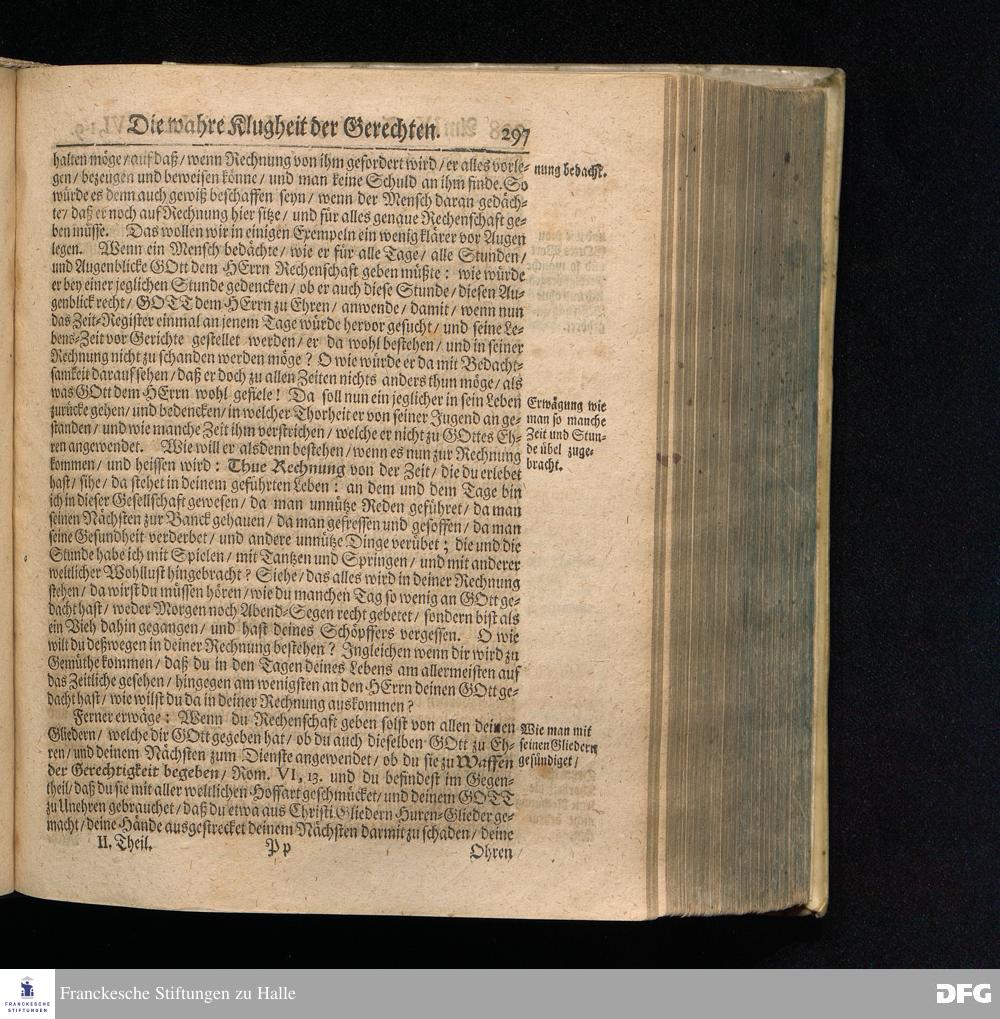 Die wahre Klugheit der Gerechten. 297
halten möge/ auf daß/ wenn Rechnung von ihm gefordert wird/ er alles vorle-
gen/ bezeugen und beweisen könne/ und man keine Schuld an ihm finde. So
würde es denn auch gewiß beschaffen seyn/ wenn der Mensch daran gedäch-
te/ daß er noch auf Rechnung hier sitze/ und für alles genaue Rechenschaft ge-
ben müsse. Das wollen wir in einigen Exempeln ein wenig klärer vor Augen
legen. Wenn ein Mensch bedächte/ wie er für alle Tage/ alle Stunden/
und Augenblicke GOtt dem HErrn Rechenschaft geben müßte: wie würde
er bey einer jeglichen Stunde gedencken/ ob er auch diese Stunde/ diesen Au-
genblick recht/ GOTT dem HErrn zu Ehren/ anwende/ damit/ wenn nun
das Zeit-Register einmal an jenem Tage würde hervor gesucht/ und seine Le-
bens-Zeit vor Gerichte gestellet werden/ er da wohl bestehen/ und in seiner
Rechnung nicht zu schanden werden möge? O wie würde er da mit Bedacht-
samkeit darauf sehen/ daß er doch zu allen Zeiten nichts anders thun möge/ als
was GOtt dem HErrn wohl gefiele! Da soll nun ein jeglicher in sein Leben
zurücke gehen/ und bedencken/ in welcher Thorheit er von seiner Jugend an ge-
standen/ und wie manche Zeit ihm verstrichen/ welche er nicht zu GOttes Eh-
ren angewendet. Wie will er alsdenn bestehen/ wenn es nun zur Rechnung
kommen/ und heissen wird: Thue Rechnung von der Zeit/ die du erlebet
hast/ sihe/ da stehet in deinem geführten Leben: an dem und dem Tage bin
ich in dieser Gesellschaft gewesen/ da man unnütze Reden geführet/ da man
seinen Nächsten zur Banck gehauen/ da man gefressen und gesoffen/ da man
seine Gesundheit verderbet/ und andere unnütze Dinge verübet; die und die
Stunde habe ich mit Spielen/ mit Tantzen und Springen/ und mit anderer
weltlicher Wohllust hingebracht? Siehe/ das alles wird in deiner Rechnung
stehen/ da wirst du müssen hören/ wie du manchen Tag so wenig an GOtt ge-
dacht hast/ weder Morgen noch Abend-Segen recht gebetet/ sondern bist als
ein Vieh dahin gegangen/ und hast deines Schöpffers vergessen. O wie
wilt du deßwegen in deiner Rechnung bestehen? Ingleichen wenn dir wird zu
Gemüthe kommen/ daß du in den Tagen deines Lebens am allermeisten auf
das Zeitliche gesehen/ hingegen am wenigsten an den HErrn deinen GOtt ge-
dacht hast/ wie wilst du da in deiner Rechnung auskommen?
Ferner erwäge: Wenn du Rechenschaft geben solst von allen deinen
Gliedern/ welche dir GOtt gegeben hat/ ob du auch dieselben GOtt zu Eh-
ren/ und deinem Nächsten zum Dienste angewendet/ ob du sie zu Waffen
der Gerechtigkeit begeben/ Rom. VI, 13. und du befindest im Gegen-
theil/ daß du sie mit aller weltlichen Hoffart geschmücket/ und deinem GOTT
zu Unehren gebrauchet/ daß du etwa aus Christi Gliedern Huren-Glieder ge-
macht/ deine Hände ausgestrecket deinem Nächsten darmit zu schaden/ deine
II. Theil. Pp Ohren
nung bedacht.
Erwägung wie
man so manche
Zeit und Stun-
de übel zuge-
bracht.
Wie man mit
seinen Gliedern
gesündiget/
Franckesche Stiftungen zu Halle
FRANCKESCHE
STIFTUNGEN
DFG